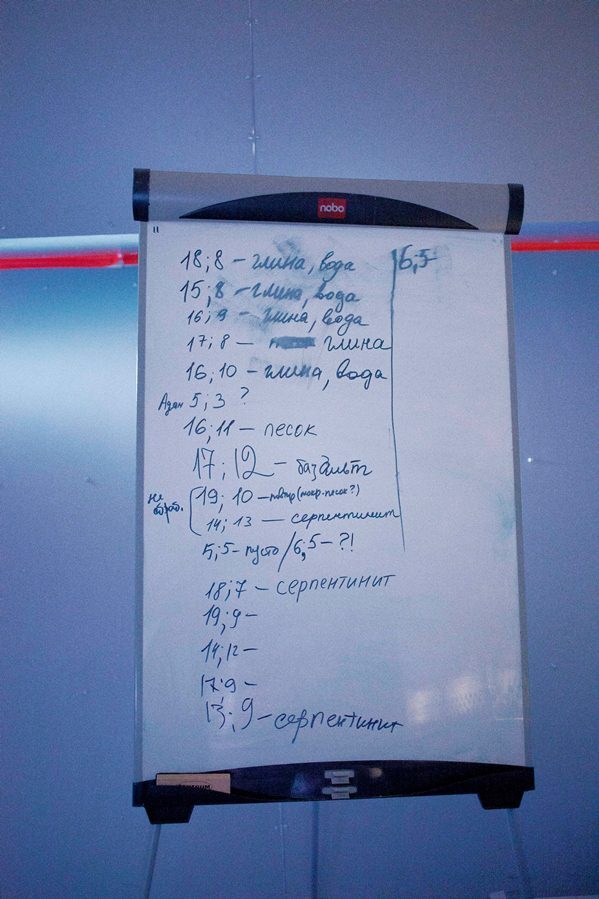 nobo
18; 8 – глина, вода
6,5
15; 8 – глина, вода
16; 9 – глина, вода
17; 8 – глина
16; 10 – глина, вода
5; 3 ?
16; 11 – песок
17; 12 – базальт
не
19; 10 – повтор (мокр. песок?)
14; 13 – серпентинит
5; 5 – пусто / 6; 5 – ?!
18; 7 – серпентинит
19; 9 –
14; 12 –
17; 9 –
13; 9 – серпентинит